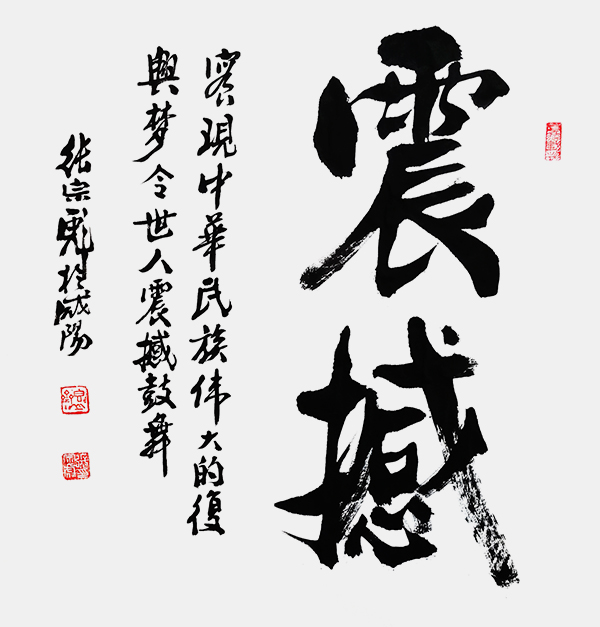 震撼
實現中華民族伟大的復
興梦令世人震撼鼓舞
張宗彪於咸陽